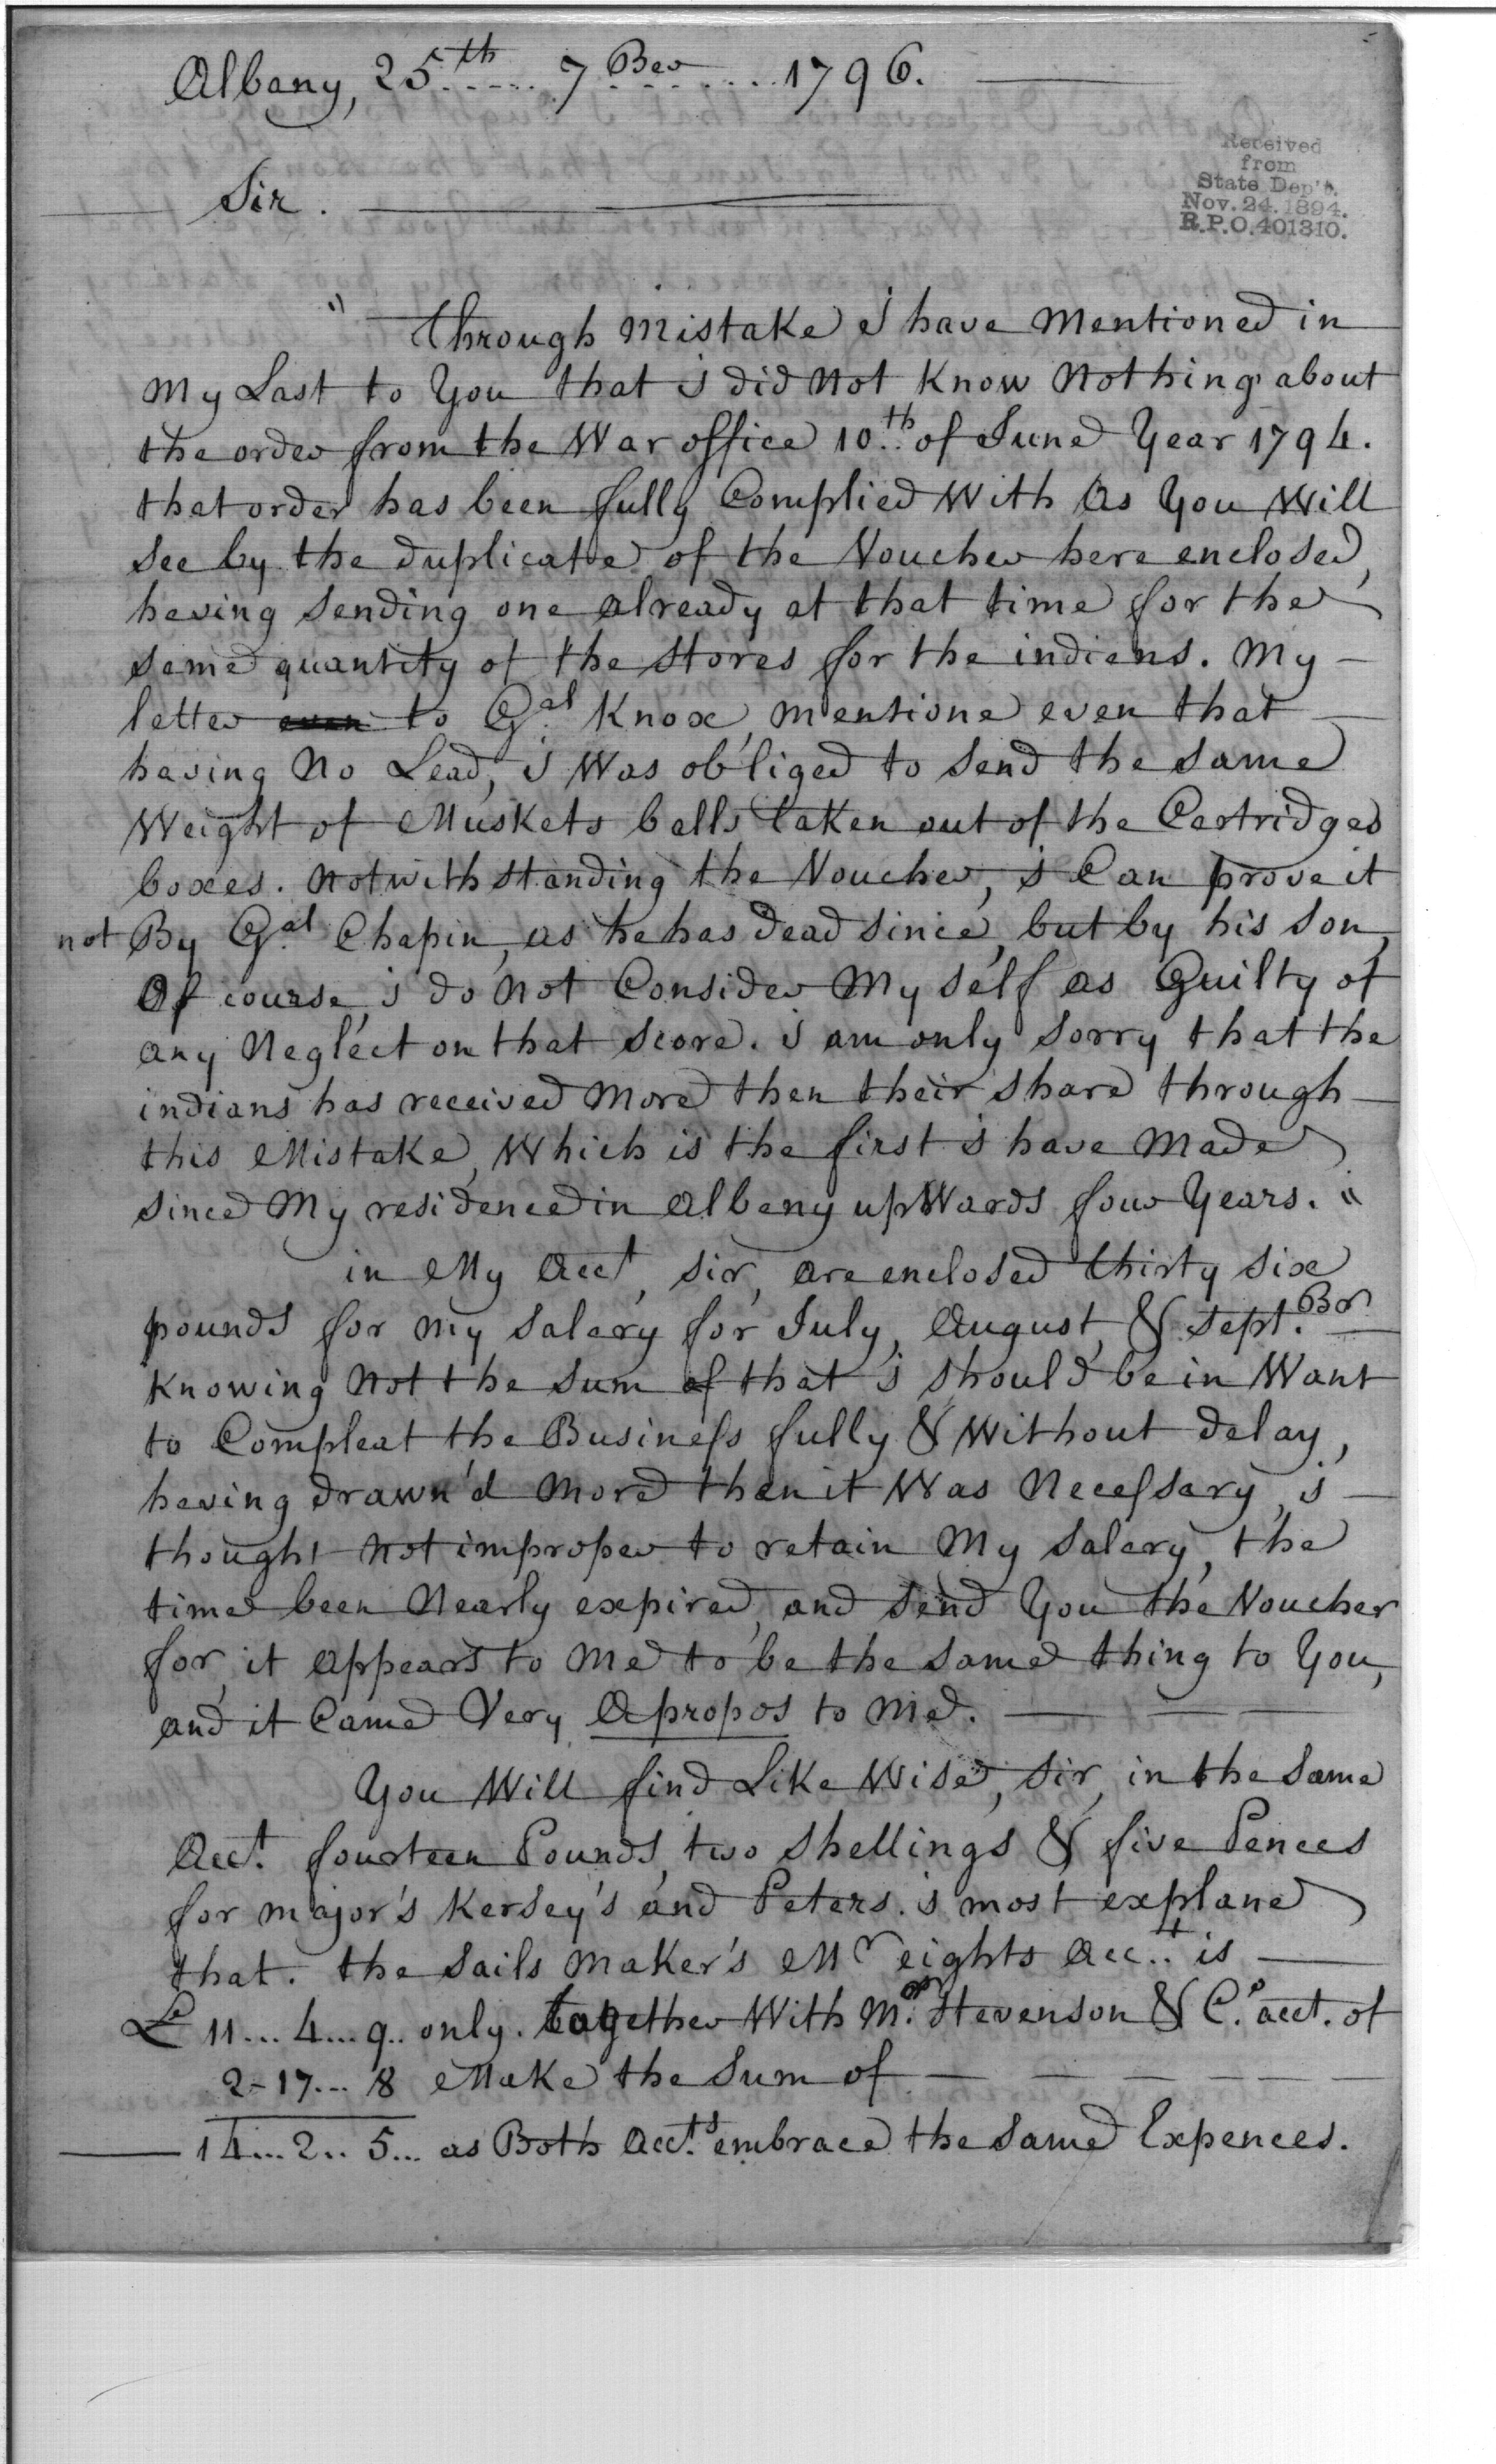 Albany, 25th ..... 7Ber ..... 1796.
Received
from
State Dep't.
Nov. 24. 1894.
R.P.O. 401310.
Sir.
" through Mistake i have Mentioned in
My Last to You that i did Not Know Nothing about
the order from the War office 10th of June Year 1794.
that order has been fully Complied With As You Will
see by the duplicate of the Voucher here enclosed,
having sending one already at that time for the
same quantity of the stores for the indians. My
letter even to Gal Knox, mentione even that
having No Lead, i Was obliged to send the same
Weight of Muskets balls taken out of the Cartridges
boxes. Notwithstanding the Voucher, i Can prove it
not By Gal Chapin, as he has dead since, but by his son,
Of course, i do Not Consider My self as Guilty of
any Neglect on that score. i am only sorry that the
indians has received More then their share through
this Mistake, Which is the first i have Made
since My residence in Albany upWards four Years. "
in My Acct, sir, are enclosed thirty six
pounds for my salary for July, August, & sept.Br
Knowing Not the sum of that i should be in Want
to Compleat the Business fully & Without delay,
having drawn'd More than it Was Necessary, i
thought Not improper to retain My salary, the
time been Nearly expired, and send You the Voucher
for, it appears to Me to be the same thing to You,
and it Came Very Apropos to Me.
You Will find Like Wise, sir, in the same
Acct. fourteen Pounds, two shellings & five Pences
for major's Kersey's and Peters. i most explane
that. the sails maker's Mr eights Acc.t is
£ 11...4...9.. only. together With Mr. Stevenson & Co. acct. of
2-17...8 Make the sum of
14...2..5... as Both Accts. embrace the same Expences.